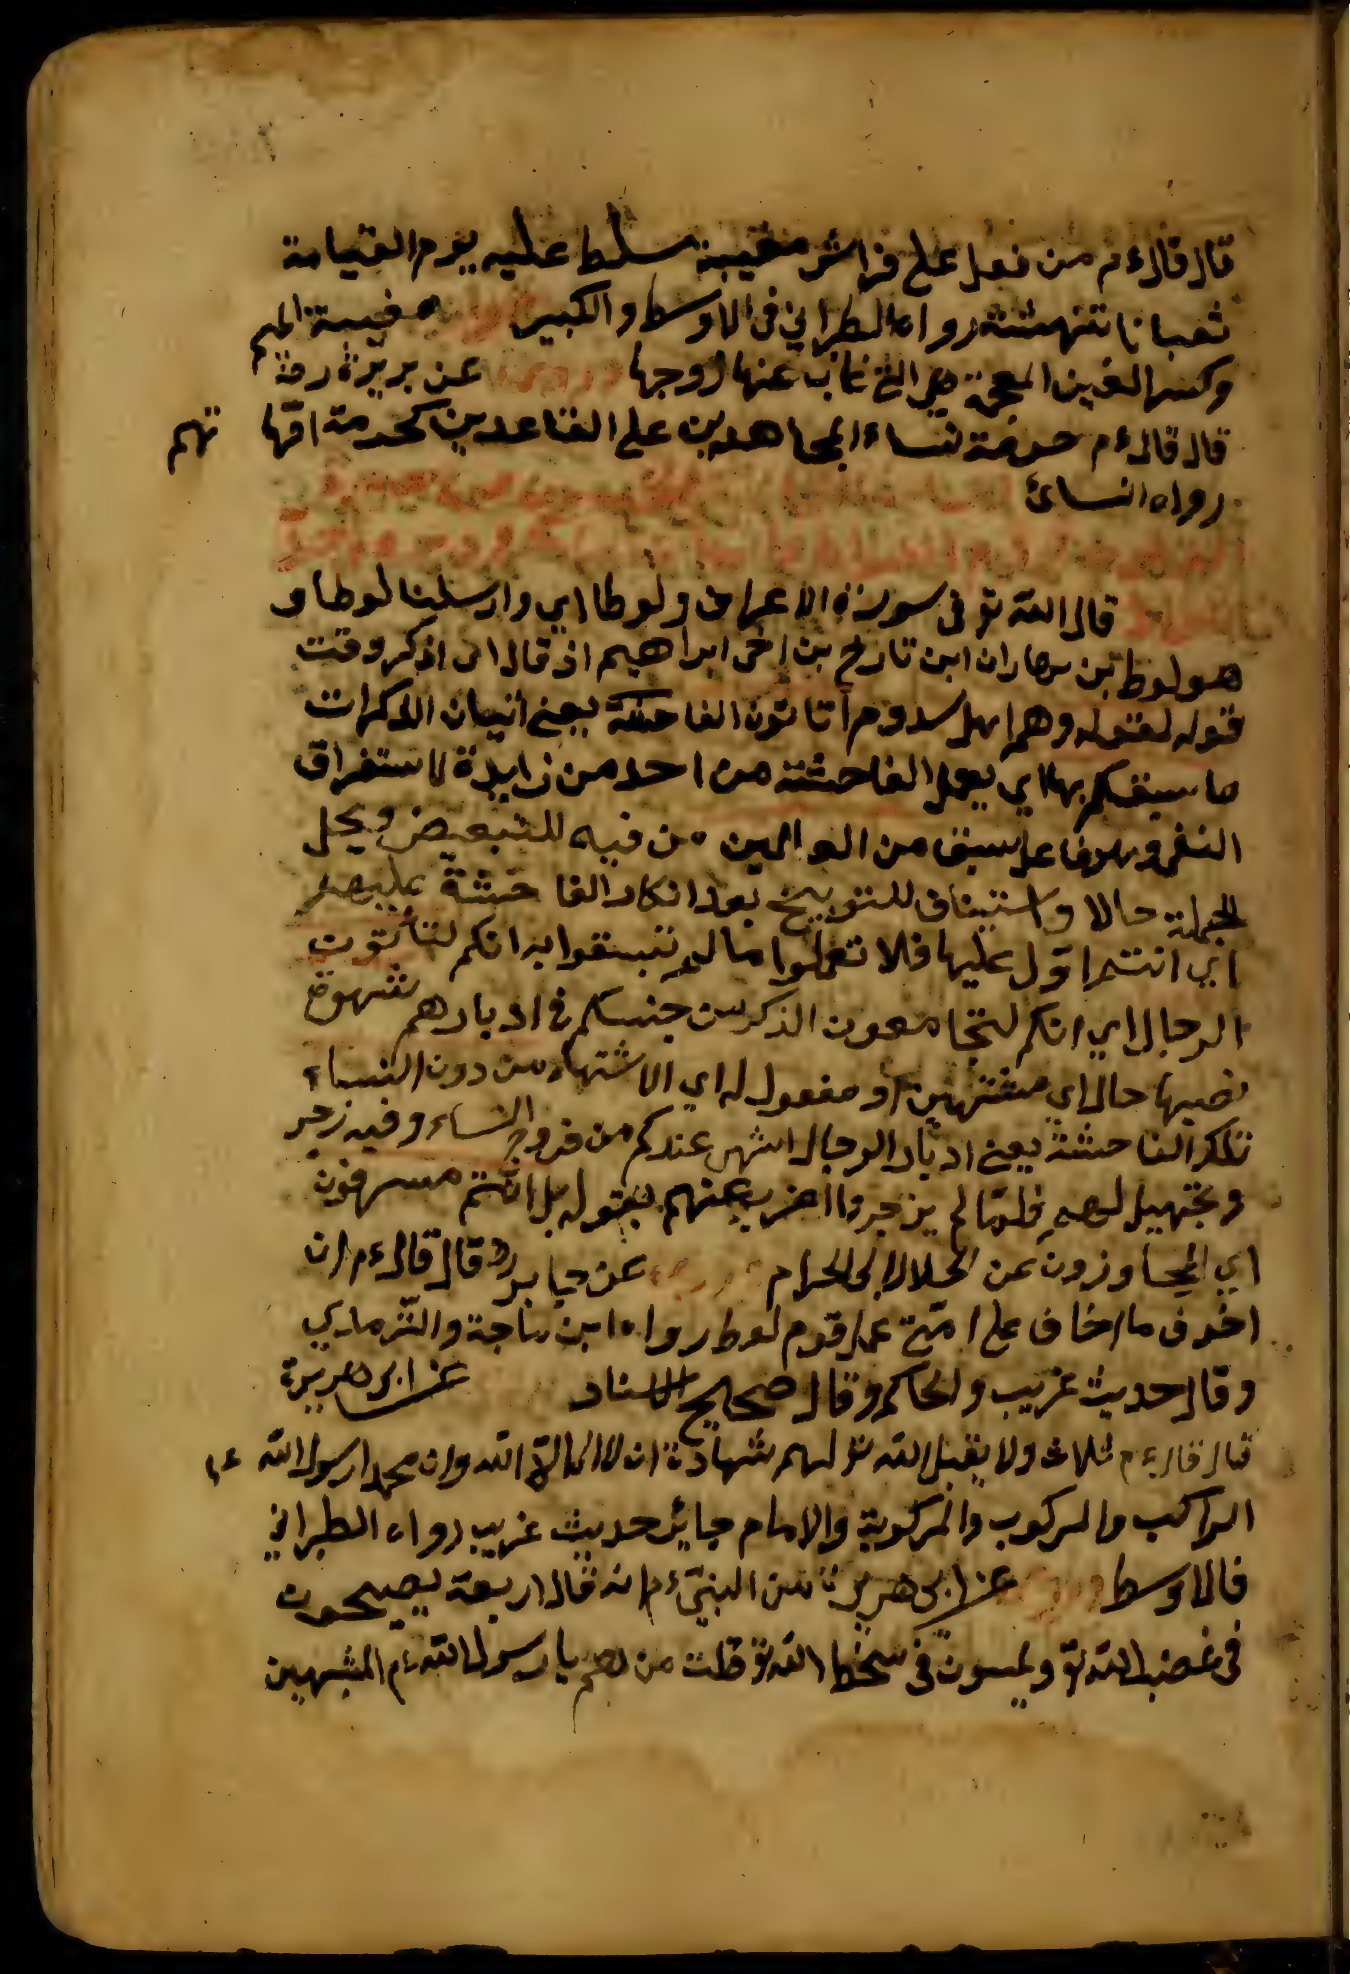 قال قال ءم من فعل على فراش مغيبة سلط عليه يوم القيامة
ثعبانا تنهشه رواه الطبراني في الاوسط والكبير مغيبة الميم
وكسر الغين المعجمة هي التي غاب عنها زوجها عن بريدة رضة
قال قال ءم حرمة نساء المجاهدين على القاعدين كحرمة امّها تهم
رواه النسائ
قال الله تو في سورة الاعراف ولوطا اي وارسلنا لوطا و
هو لوط بن هاران ابن تارخ بن اخي ابراهيم اذ قال اي اذكر وقت
قوله لقومه وهم اهل سدوم أتاتون الفاحشة يعني اتيان الذكرات
ما سبقكم بها اي بعمل الفاحشة من احد من زايدة لاستغراق
النفي وهو فاعل سبق من العالمين من فيه للتبعيض ومحل
الجملة حالا واستيناف للتوبيخ بعد انكار الفاحشة عليهم
اي انتم اوّل عليها فلا تعملوا ما لم تسبقوا به انكم لتأتون
الرجال اي انكم لتجامعون الذكر من جنسكم في ادبارهم شهوة
نصبها حال اي مشتهين او مفعول له اي الاشتهاء من دون النساء
تلك الفاحشة يعني ادبار الرجال اشهى عندكم من فروج النساء وفيه زجر
وتجهيل لهم فلمّا لم يزجروا اضرب عنهم بقوله بل انتم مسرفون
اي المجاوزون عن الحلال الى الحرام عن جابر رض قال قال ءم ان
اخوف ما اخاف على امّتي عمل قوم لوط رواه ابن ماجة والترمذي
وقال حديث غريب والحاكم وقال صحيح الاسناد عن ابي هريرة
قال قال ءم ثلاث ولا يقبل الله تو لهم شهادة ان لا اله الا الله وان محمدا رسول الله ءم
الراكب والمركوب والمركوبة والامام جائر حديث غريب رواه الطبراني
في الاوسط عن ابي هريرة عن النبيّ ءم انه قال اربعة يصبحون
في غضب الله تو ويمسون في سخط الله تو قلت من هم يا رسول الله ءم المشبهين